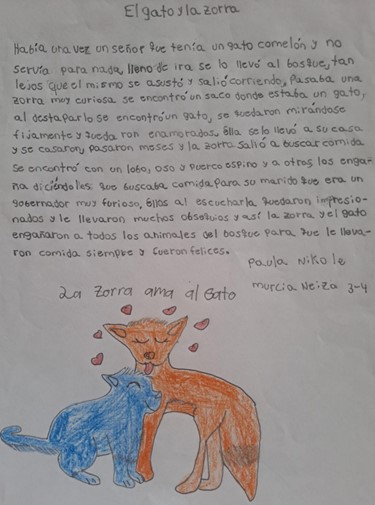 El gato y la zorra
Había una vez un señor que tenía un gato comelón y no
servía para nada, lleno de ira se lo llevó al bosque, tan
lejos que el mismo se asustó y salió corriendo, Pasaba una
zorra muy curiosa se encontró un saco donde estaba un gato,
al destaparlo se encontró un gato, se quedaron mirándose
fijamente y queda ron enamorados, Ella se lo llevó a su casa
y se casaron, pasaron meses y la zorra salió a buscar comida
se encontró con un lobo, oso y puerco espino y a otros los enga-
ña diciéndoles: que buscaba comida para su marido que era un
gobernador muy furioso, Ellos al escucharla quedaron impresio-
nados y le llevaron muchos obsequios y así la zorra y el gato
engañaron a todos los animales del bosque para que le lleva-
ron comida siempre y fueron felices.
Paula Nikole
murcia Neiza 3-4
La zorra ama al Gato